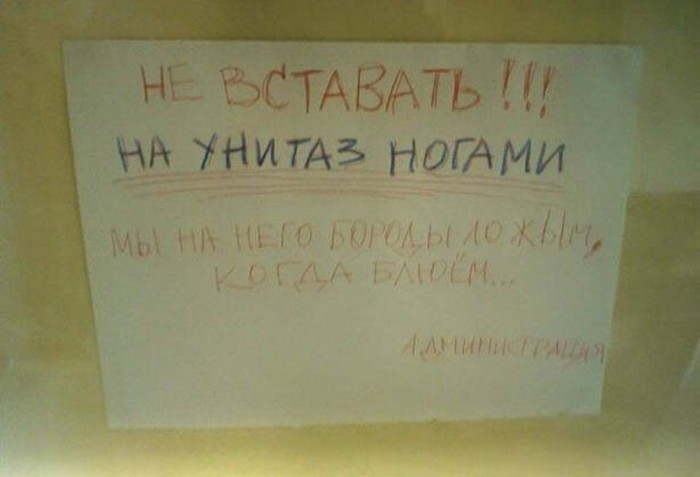 НЕ ВСТАВАТЬ !!!
НА УНИТАЗ НОГАМИ
МЫ НА НЕГО БОРОДЫ ЛОЖЫМ,
КОГДА БЛЮЁМ...
АДМИНИСТРАЦИЯ